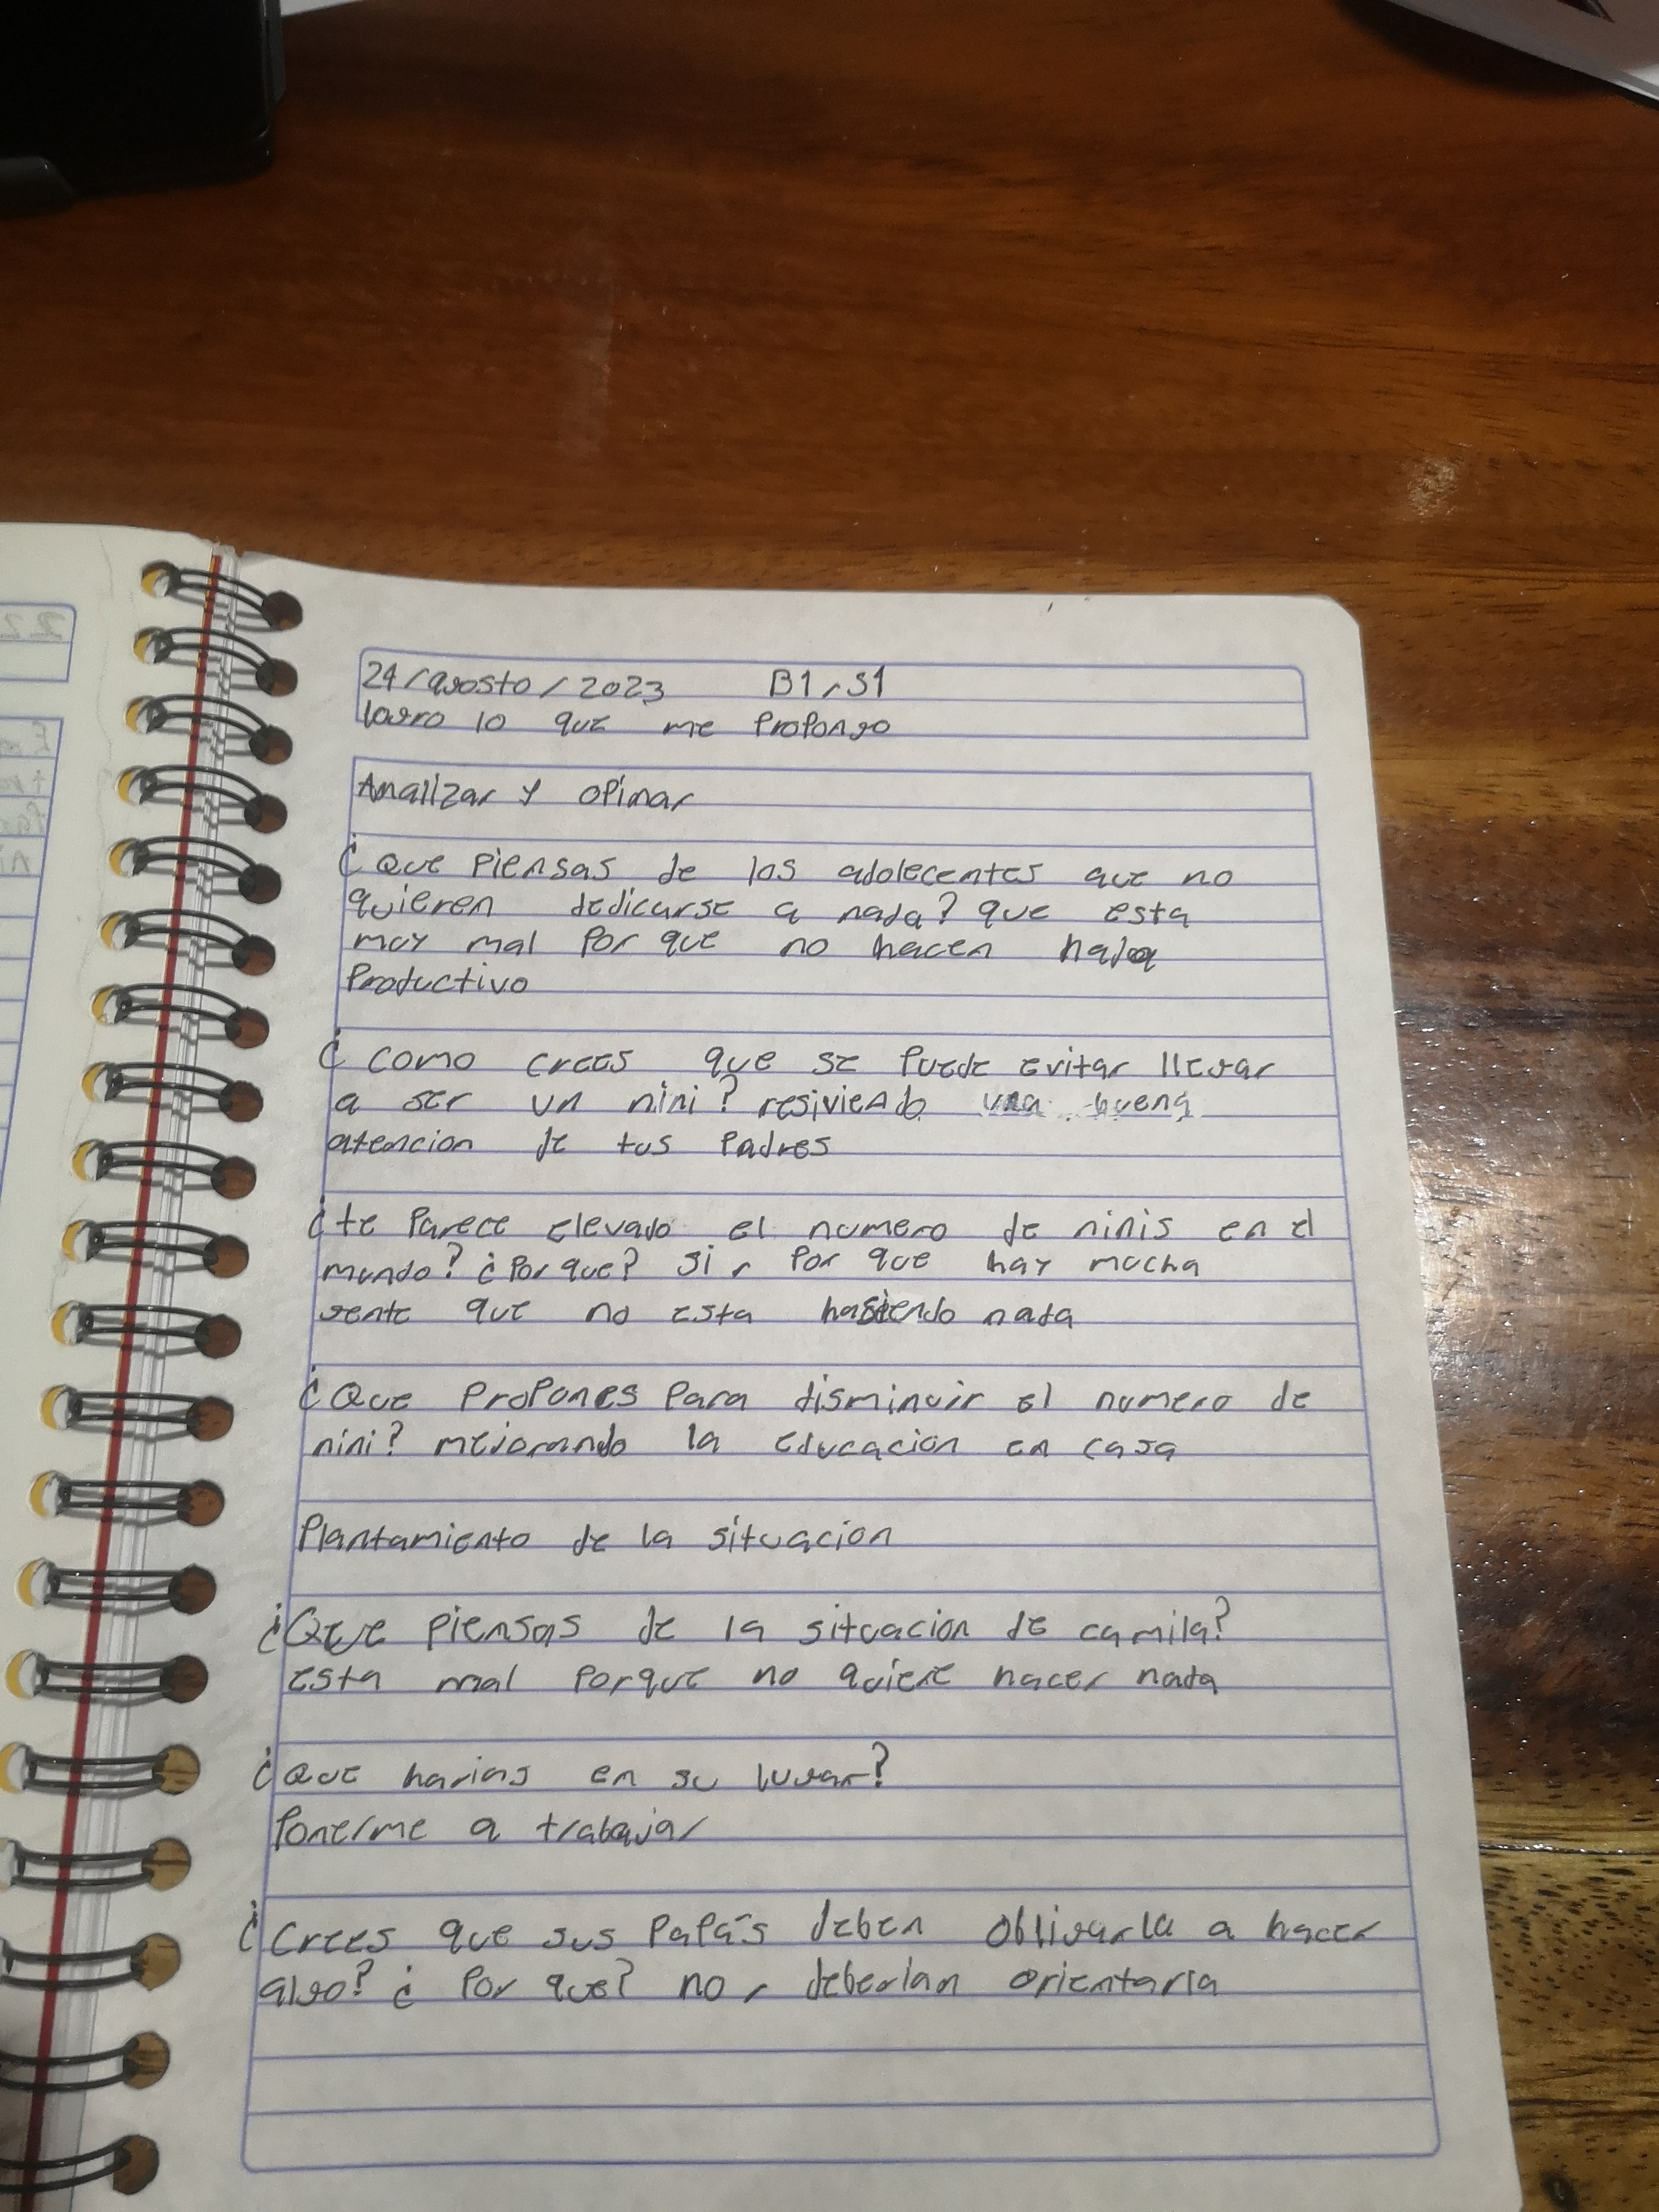 24/agosto/2023 B1,S1
logro lo que me Propongo
Analizar y opinar
¿Que Piensas de los adolecentes que no
quieren dedicarse a nada? que esta
muy mal Por que no hacen nada
Productivo
¿como crees que se Puede evitar llegar
a ser un nini? resiviendo una buena
atencion de tus Padres
¿te Parece elevado el numero de ninis en el
mundo? ¿Por que? si, Por que hay mucha
gente que no esta hasiendo nada
¿Que ProPones Para disminuir el numero de
nini? mejorando la educacion en casa
Plantamiento de la situacion
¿Que Piensas de la situacion de camila?
esta mal Porque no quiere hacer nada
¿Que harias en su lugar?
Ponerme a trabajar
¿Crees que sus PaPás deben obligarla a hacer
algo? ¿Por que? no, deberian orientarla